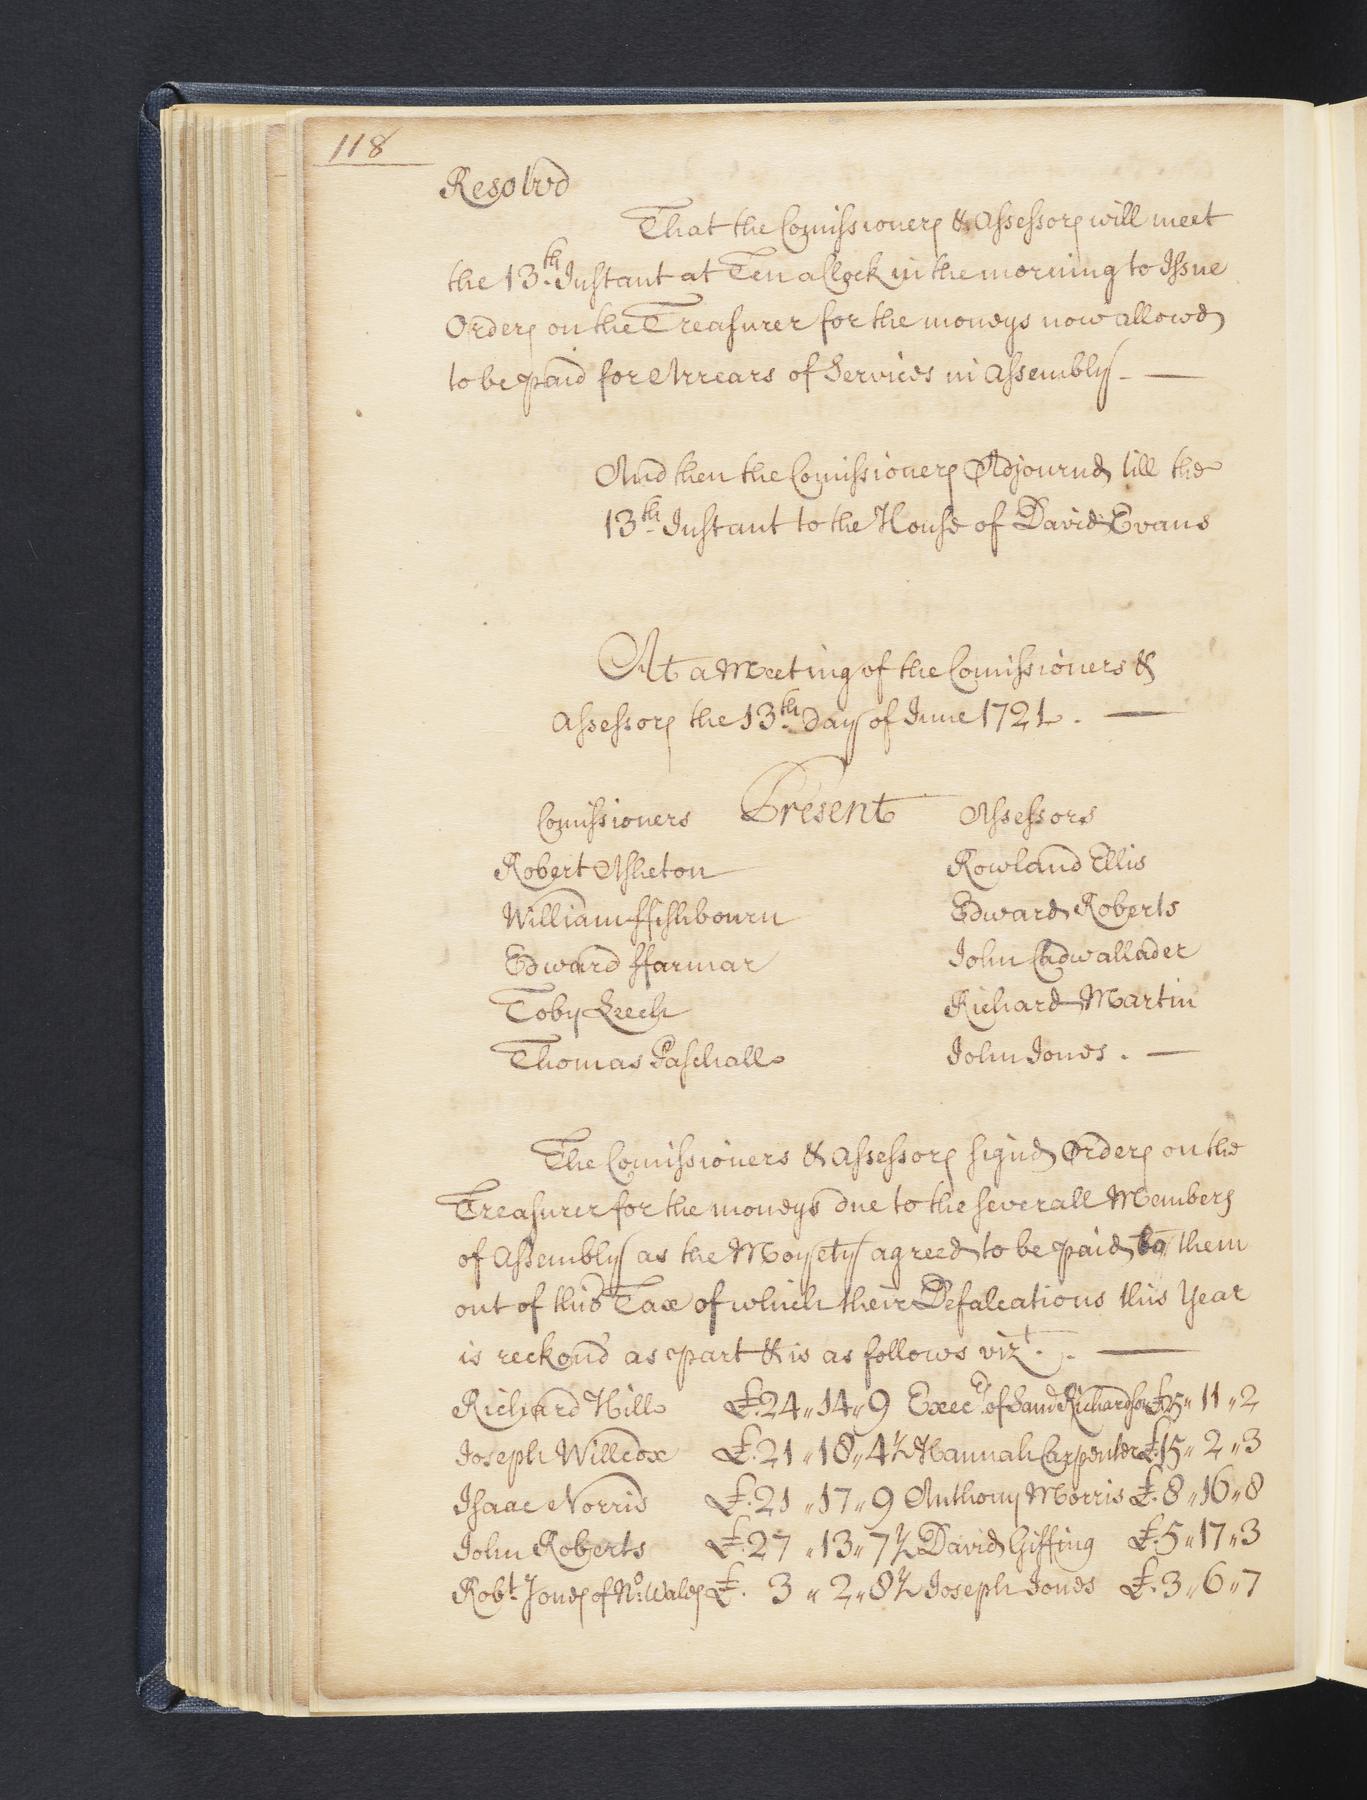 118
Resolvd
That the Comissioners & Assessors will meet
the 13th Instant at Ten a Clock in the morning to Issue
Orders on the Treasurer for the moneys now allowed
to be paid for Arrears of Services in Assembly. —
And then the Comissioners Adjournd till the
13th Instant to the House of David Evans
At a Meeting of the Comissioners &
Assessors the 13th Day of June 1721. —
Comissioners Present Assessors
Robert Asheton Rowland Ellis
William ffishbourn Edward Roberts
Edward ffarmar John Cadwallader
Toby Leech Richard Martin
Thomas Paschall John Jones. —
The Comissioners & Assessors signd Orders on the
Treasurer for the moneys due to the severall Members
of Assembly as the Moyety agreed to be paid to them
out of this Tax of which their Defalcations this Year
is reckond as part & is as follows vizt. —
Richard Hill £.24„14„9 Execrs. of Saml Richardson £5„11„2
Joseph Willcox £.21„18„4½ Hannah Carpenter £.15„2„3
Isaac Norris £.21„17„9 Anthony Morris £.8„16„8
John Roberts £.27„13„7½ David Giffing £.5„17„3
Robt. Jones of No. Wales £. 3„2„8½ Joseph Jones £.3„6„7